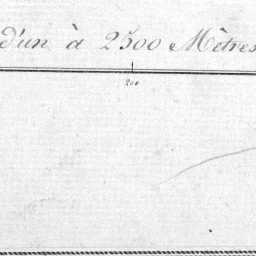 d'un à 2500 Mètres
200